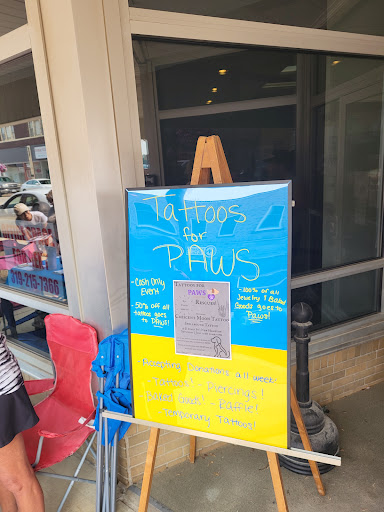 Tattoos
for
PAWS
-Cash Only
Event
-50% off all
tattoos goes to
PAWS!
TATTOOS FOR
PAWS
RESCUE!
-100% of all
Jewelry & Baked
Goods goes to
Paws!
- Accepting Donations all week!
- Tattoos! - Piercings!
- Baked Goods! - Raffle!
- Temporary Tattoos!